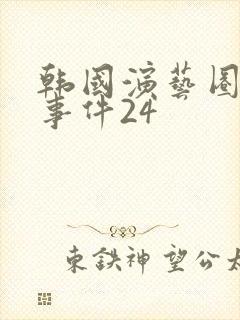 韩國演藝圈
事件24
東鉄神望公太